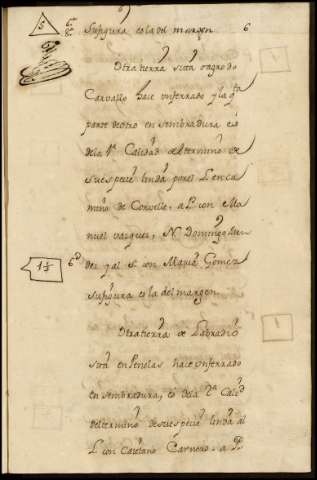 6
Su figura es la del margen
Otra tierra sita
Carvallo hace un ferrado y la 4ª
parte de otro en sembradura es
de la 1ª Calidad del termino de
su especie linda por el L. en ca
mino de Corvelle, a P. con Ma
nuel vazquez, N. Domingo Men
dez y al S. con Maria Gomez
su figura es la del margen.
Otra tierra de Labradio
sita en Penelas hace un ferrado
en sembradura, es de la 2ª Calid
del termino de su especie linda al
L. con Caietano Carnero, a P.